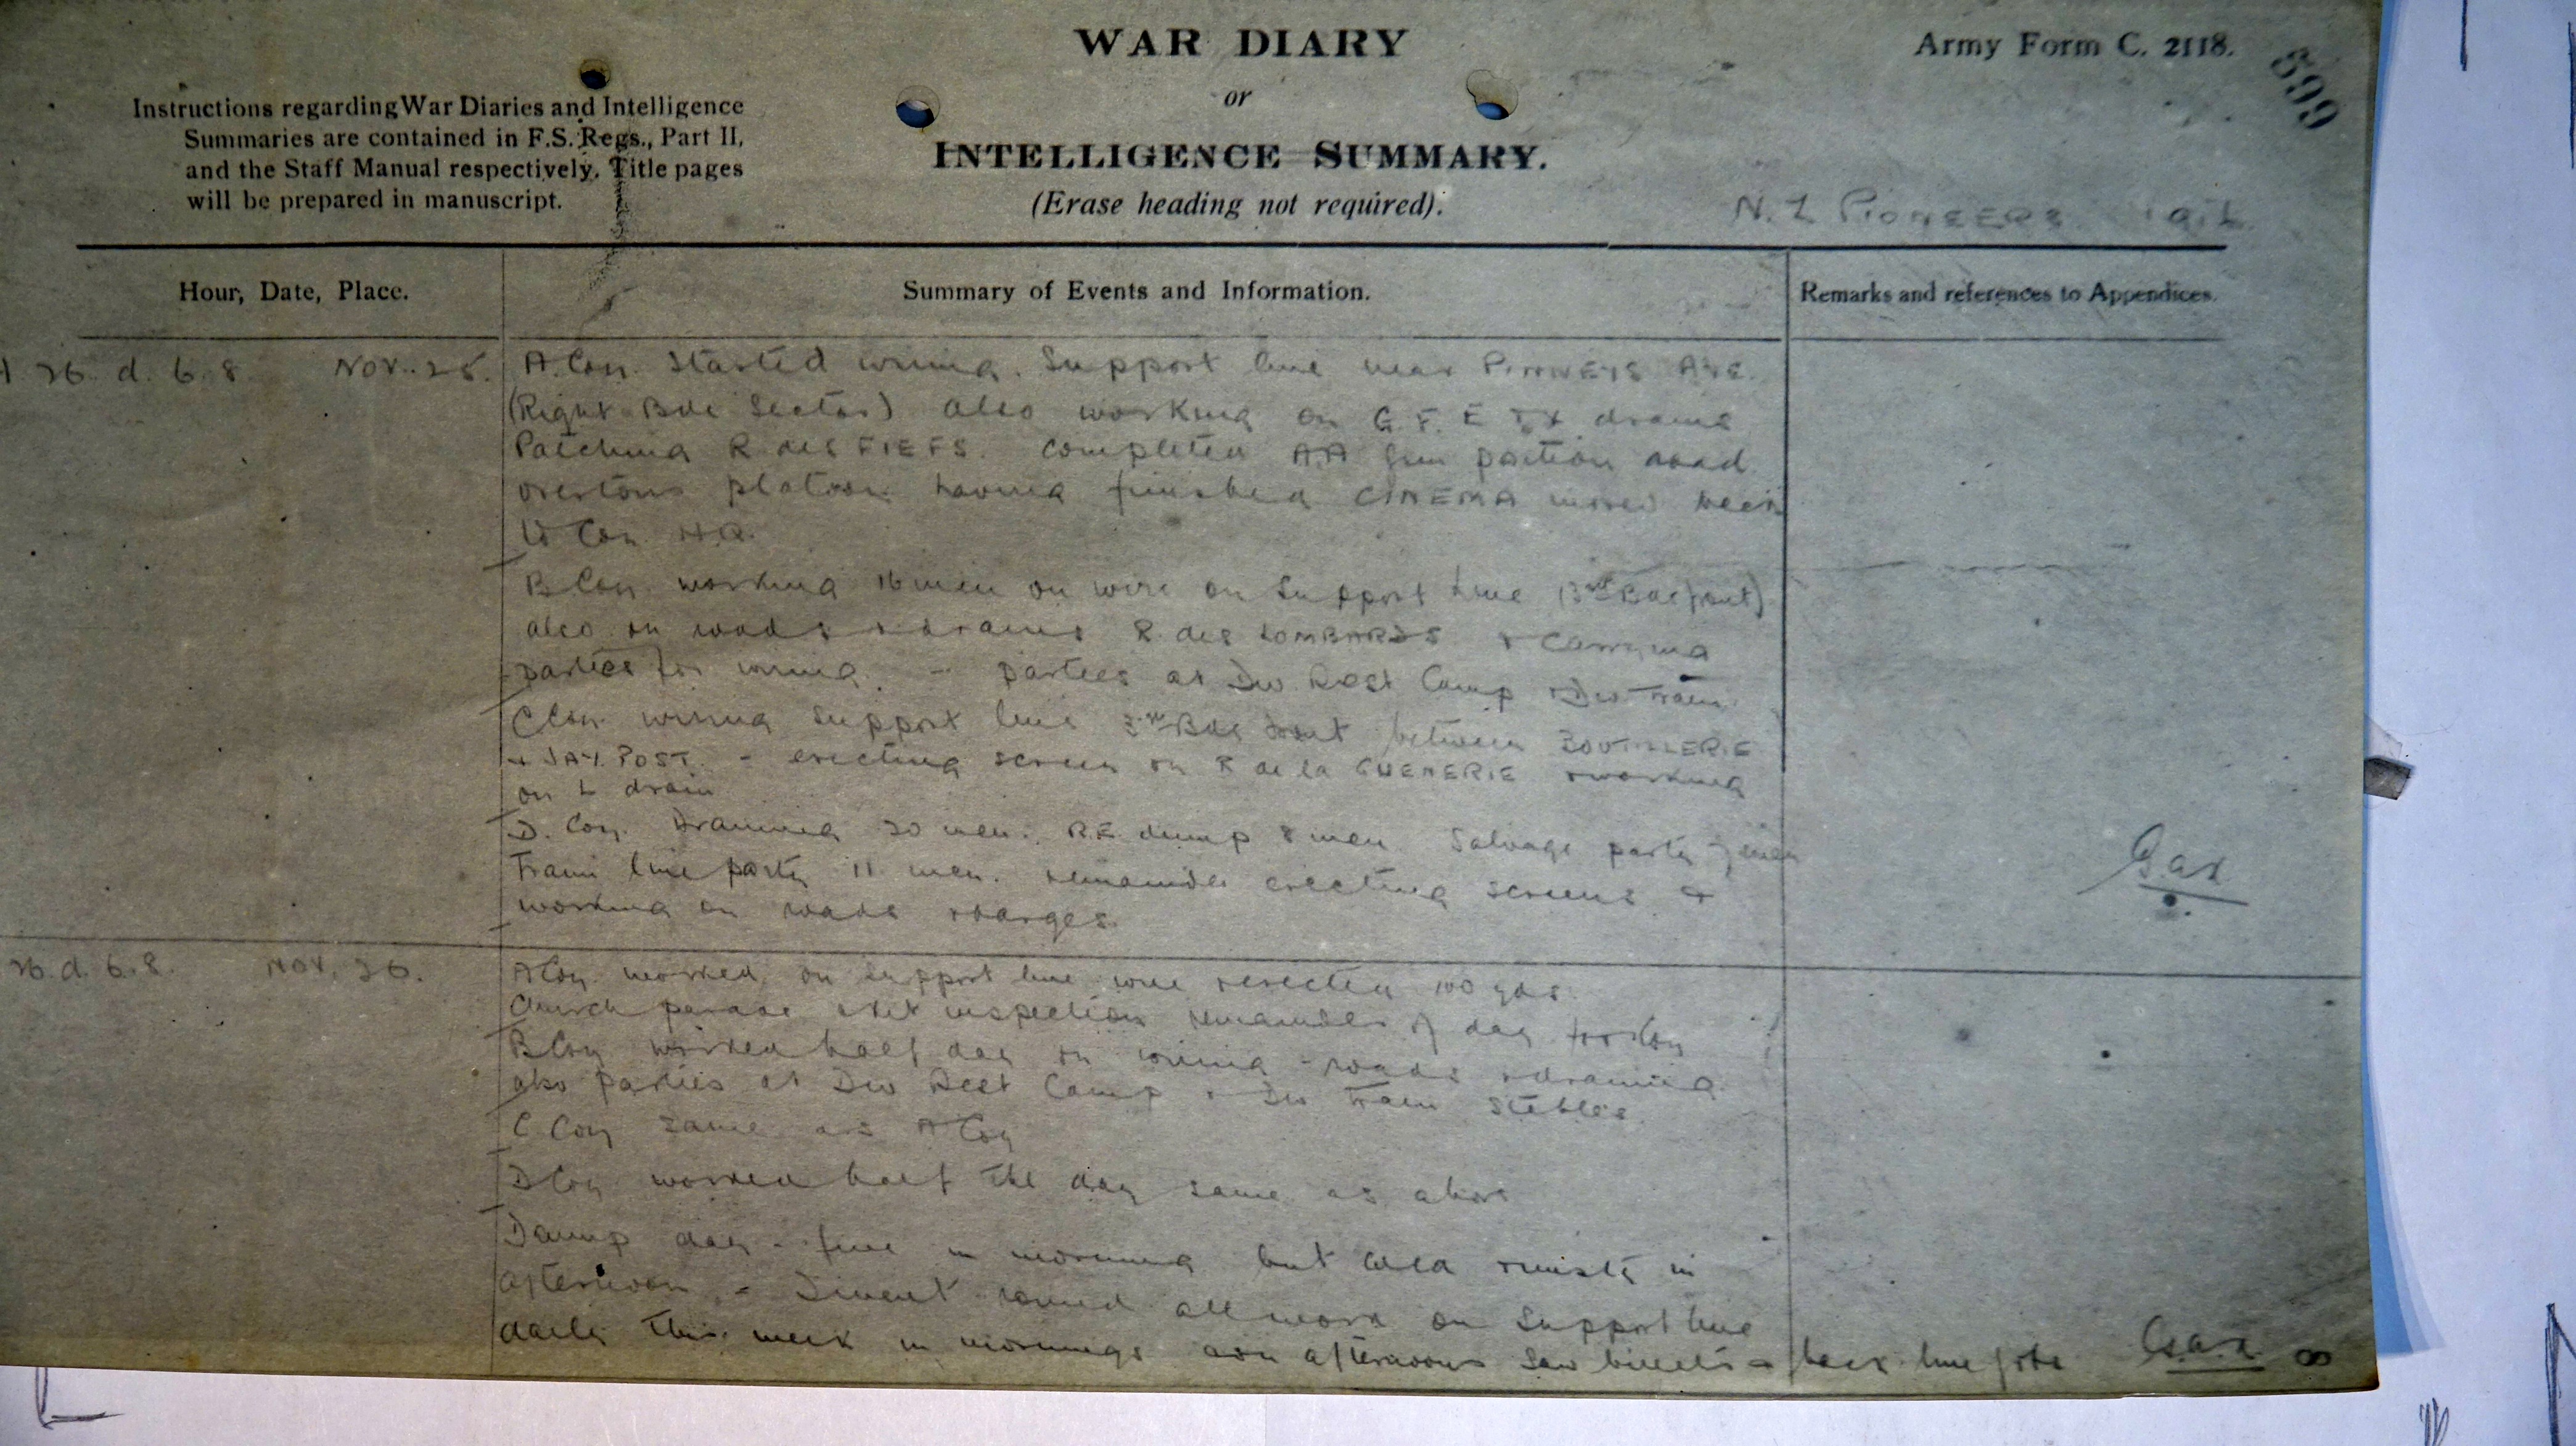 WAR DIARY
or
INTELLIGENCE SUMMARY.
(Erase heading not required).
Army Form C. 2118.
699
Instructions regarding War Diaries and Intelligence
Summaries are contained in F.S. Regs., Part II,
and the Staff Manual respectively. Title pages
will be prepared in manuscript.
N. Z PIONEERS 1916
Hour, Date, Place.
Summary of Events and Information.
Remarks and references to Appendices.
H 26. d. 6. 8 NOV. 25.
A. Coy. Started wiring. Support line near PINNEYS AVE.
(Right Bde Sector) also working on G. F. E drains
Patching R des FIEFS. completed AA Gun position road
overtons platoon having finished CINEMA moved back
to Coy. HQ.
B Coy. working 16 men on wire on Support Line (3rd Bde front)
also on roads & drains R. des LOMBARDS & Carrying
parties for wiring. - parties at Div Rest Camp & Div Train.
C Coy. wiring Support line 3rd Bde front between BOUTILLERIE
& JAY. POST. - erecting screen on R de la GUENERIE & working
on L drain
D. Coy. Draining 20 men. R.E. dump 8 men Salvage party 7 men
Tram line party 11 men. remainder erecting screens &
working on roads & barges.
26. d. 6. 8. NOV. 26.
A Coy. worked on support line wire & erected 100 yds.
Church parade & kit inspection remainder of day for Coy
B Coy worked half day on wiring - roads & draining
also parties at Div Rest Camp & Div Train Stables.
C Coy same as A Coy
D Coy worked half the day same as above
Damp day - fine in morning but cold & misty in
afternoon. - Went round all work on Support line
daily this week in mornings and afternoons saw billets & back line jobs
8